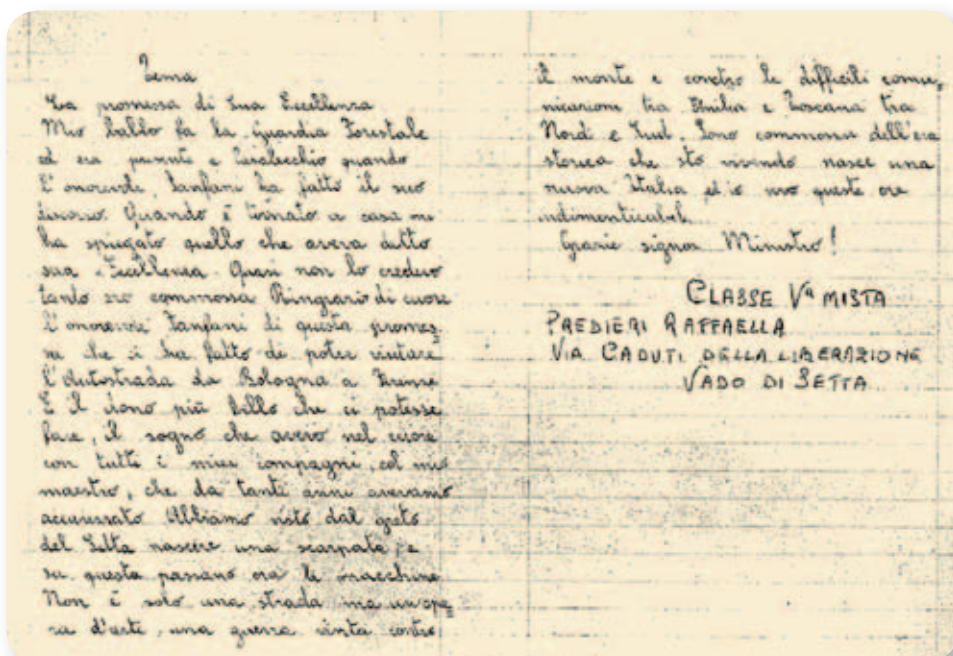 Tema
La promessa di Sua Eccellenza
Mio babbo fa la Guardia Forestale
ed era presente a Casalecchio quando
l'onorevole Fanfani ha fatto il suo
discorso. Quando è tornato a casa mi
ha spiegato quello che aveva detto
sua Eccellenza. Quasi non lo credevo
tanto ero commossa Ringrazio di cuore
l'onorevole Fanfani di questa promes=
sa che ci ha fatto di poter visitare
l'Autostrada da Bologna a Firenze
È il dono più bello che ci potesse
fare, il sogno che avevo nel cuore
con tutti i miei compagni, col mio
maestro, che da tanti anni avevamo
accarezzato Abbiamo visto dal greto
del Setta nascere una scarpata, e
su questa passano ora le macchine
Non è solo una strada ma un'ope=
ra d'arte, una guerra vinta contro
il monte e contro le difficili comu=
nicazioni tra Emilia e Toscana tra
Nord e Sud. Sono commossa dell'era
storica che sto vivendo nasce una
nuova Italia ed io vivo queste ore
indimenticabili.
Grazie signor Ministro!
CLASSE Vª MISTA
PREDIERI RAFFAELLA
VIA CADUTI DELLA LIBERAZIONE
VADO DI SETTA